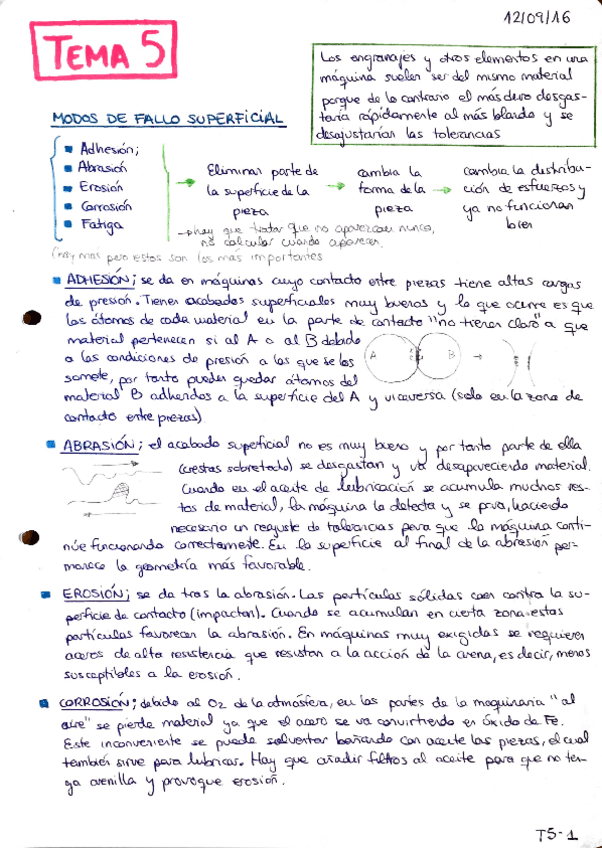 12/09/16
TEMA 5
Los engranajes y otros elementos en una
máquina suelen ser del mismo material
porque de lo contrario el más duro desgas-
taría rápidamente al más blando y se
desajustarían las tolerancias
MODOS DE FALLO SUPERFICIAL
Adhesión;
Abrasión
Erosión
Corrosión
Fatiga
Eliminar parte de
la superficie de la
pieza
cambia la
forma de la
pieza
cambia la distribu-
ción de esfuerzos y
ya no funcionan
bien
hay que tratar que no aparezcan nunca,
no calcular cuando aparecen.
(hay más pero estos son los más importantes
ADHESIÓN; se da en máquinas cuyo contacto entre piezas tiene altas cargas
de presión. Tienen acabados superficiales muy buenos y lo que ocurre es que
los átomos de cada material en la parte de contacto "no tienen claro" a que
material pertenecen si al A o al B debido
a las condiciones de presión a las que se los
somete, por tanto pueden quedar átomos del
material B adheridos a la superficie del A y viceversa (solo en la zona de
contacto entre piezas)
A B
ABRASIÓN; el acabado superficial no es muy bueno y por tanto parte de ella
(crestas sobretodo) se desgastan y va desapareciendo material.
Cuando en el aceite de lubricación se acumula muchos res-
tos de material, la máquina lo detecta y se para, haciendo
necesario un reajuste de tolerancias para que la máquina conti-
núe funcionando correctamente. En la superficie al final de la abrasión per-
manece la geometría más favorable.
EROSIÓN; se da tras la abrasión. Las partículas sólidas caen contra la su-
perficie de contacto (impactan). Cuando se acumulan en cierta zona estas
partículas favorecen la abrasión. En máquinas muy exigidas se requieren
aceros de alta resistencia que resistan a la acción de la arena, es decir, menos
susceptibles a la erosión.
CORROSIÓN; debido al O2 de la atmósfera, en las partes de la maquinaria "al
aire" se pierde material ya que el acero se va convirtiendo en óxido de Fe.
Este inconveniente se puede solventar bañando con aceite las piezas, el cual
también sirve para lubricar. Hay que añadir filtros al aceite para que no ten-
ga arenilla y provoque erosión.
T5-1